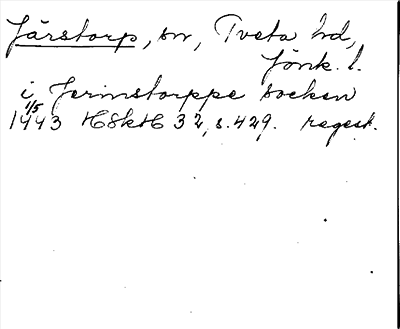 Järstorp, sn, Tveta hd,
Jönk. l.
i Jerinstorppe socken
1/5
1443 HSkH 32, s. 429. regest.